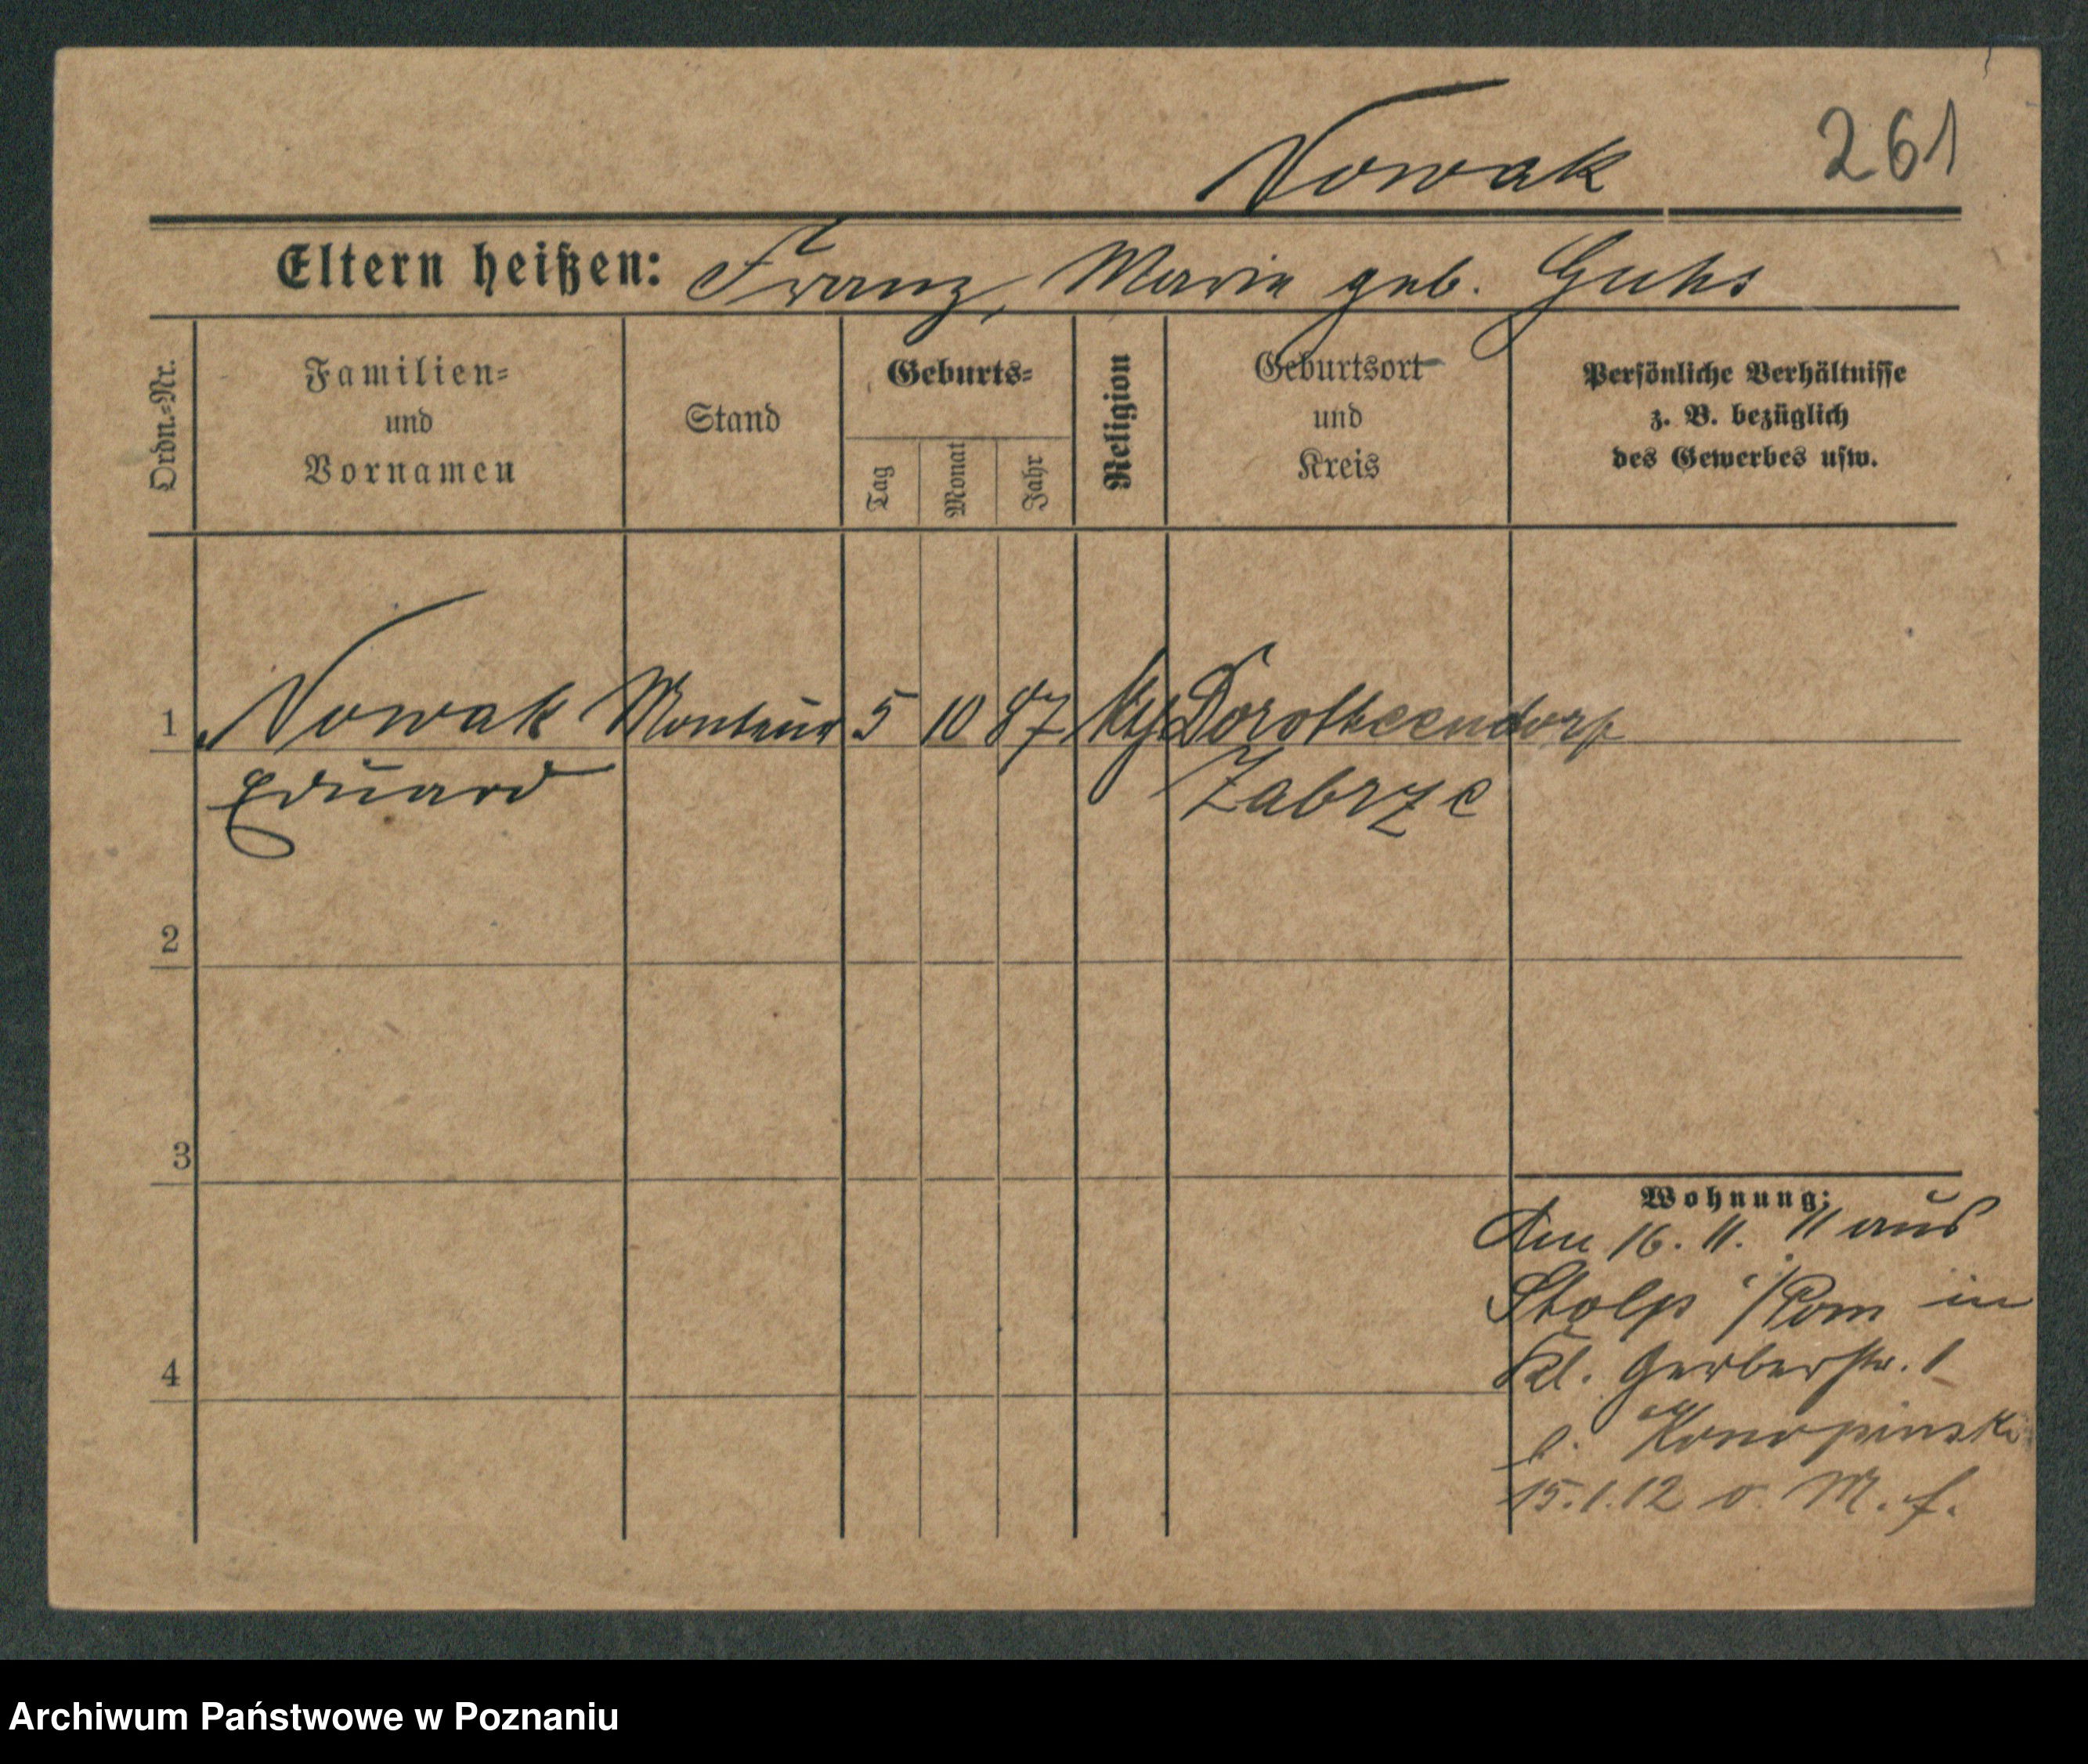 Nowak 261
Eltern heißen: Franz, Marie geb. Guhs
Ordn.-Nr.
Familien-
und
Vornamen
Stand
Geburts-
Tag
Monat
Jahr
Religion
Geburtsort
und
Kreis
Persönliche Verhältnisse
z. B. bezüglich
des Gewerbes usw.
1 Nowak Monteur 5 10 87 Dorotheendorf
Eduard Zabrze
2
3
4
Wohnung:
Am 16. 11. 11 aus
Stolp i/Pom in
Kl. Gerberstr. 1
b. Konopinski
15.1.12 o. M. f.
Archiwum Państwowe w Poznaniu